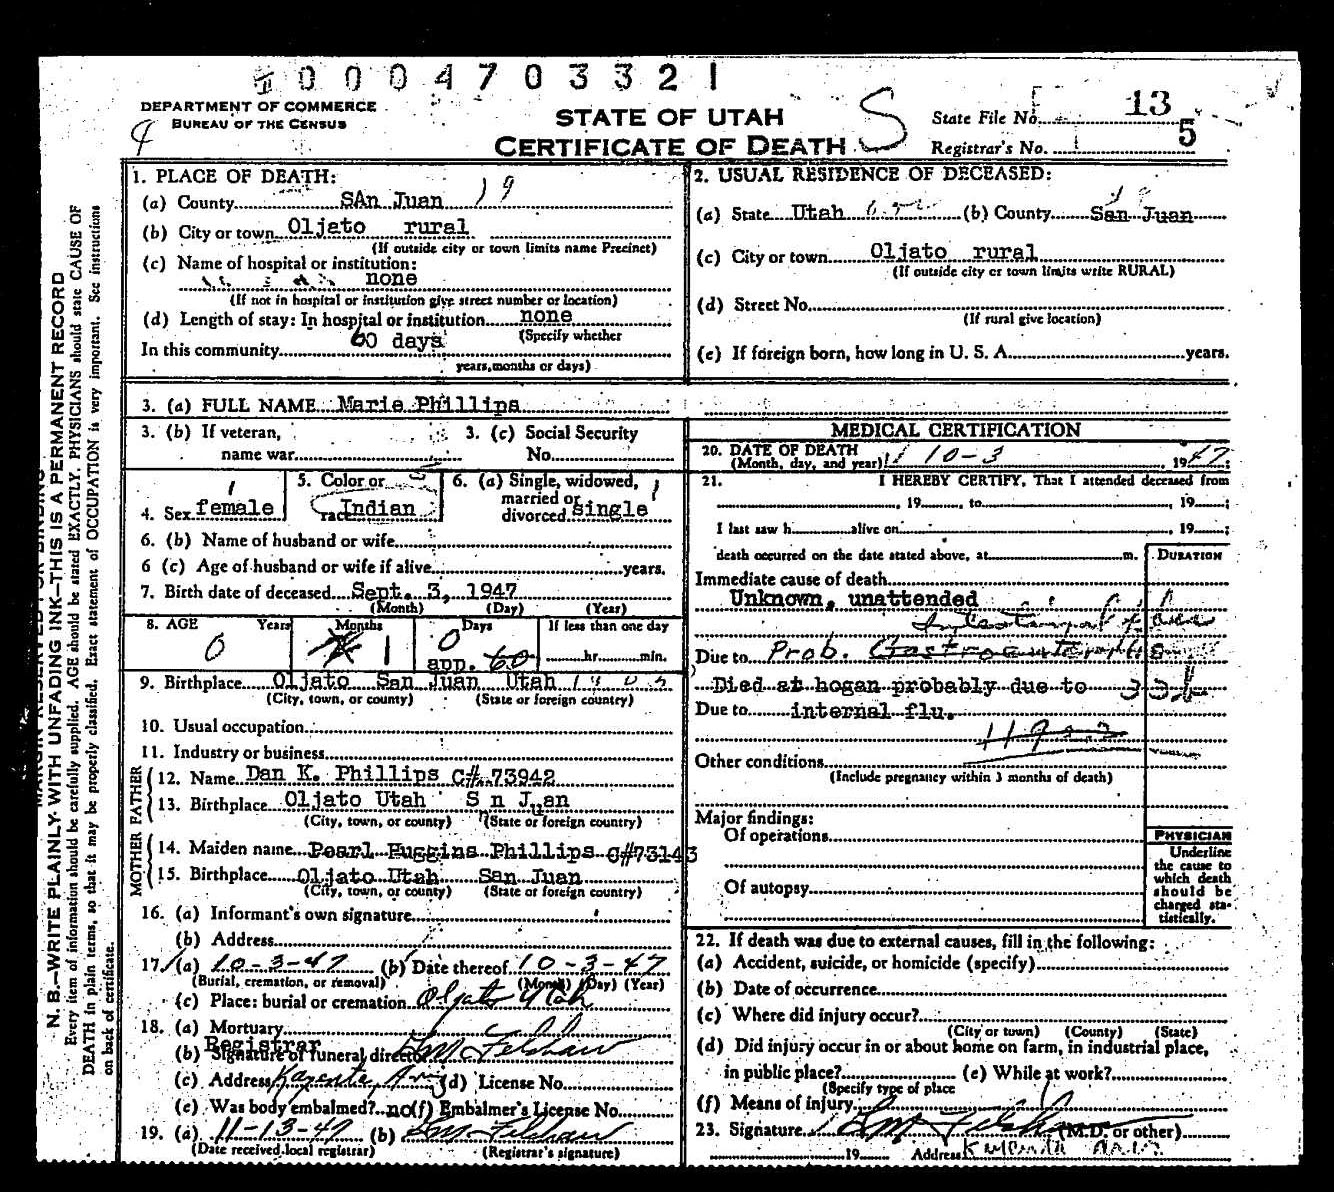 0004703321
DEPARTMENT OF COMMERCE
BUREAU OF THE CENSUS
4
STATE OF UTAH
CERTIFICATE OF DEATH
S
State File No. 13
Registrar's No. 5
1. PLACE OF DEATH:
(a) County SAn Juan 19
(b) City or town Oljato rural
(If outside city or town limits name Precinct)
(c) Name of hospital or institution:
none
(If not in hospital or institution give street number or location)
(d) Length of stay: In hospital or institution none
(Specify whether
In this community 60 days
years, months or days)
2. USUAL RESIDENCE OF DECEASED:
(a) State Utah (b) County San Juan
(c) City or town Oljato rural
(If outside city or town limits write RURAL)
(d) Street No.
(If rural give location)
(e) If foreign born, how long in U. S. A. years.
3. (a) FULL NAME Marie Phillips
3. (b) If veteran,
name war
3. (c) Social Security
No.
4. Sex female
5. Color or
race Indian
6. (a) Single, widowed,
married or
divorced single
6. (b) Name of husband or wife
6 (c) Age of husband or wife if alive years.
7. Birth date of deceased Sept. 3, 1947
(Month) (Day) (Year)
8. AGE Years Months Days If less than one day
0 1 0 hr. min.
app. 60
9. Birthplace Oljato San Juan Utah
(City, town, or county) (State or foreign country)
10. Usual occupation
11. Industry or business
FATHER
12. Name Dan K. Phillips C#.73942
13. Birthplace Oljato Utah S n Juan
(City, town, or county) (State or foreign country)
MOTHER
14. Maiden name Pearl Huggins Phillips C#73143
15. Birthplace Oljato Utah San Juan
(City, town, or county) (State or foreign country)
16. (a) Informant's own signature
(b) Address
17. (a) 10-3-47 (b) Date thereof 10-3-47
(Burial, cremation, or removal) (Month) (Day) (Year)
(c) Place: burial or cremation Oljato Utah
18. (a) Mortuary
Registrar
(b) Signature of funeral director
(c) Address Kayenta, Ariz (d) License No.
(e) Was body embalmed? no (f) Embalmer's License No.
19. (a) 11-13-47 (b)
(Date received local registrar) (Registrar's signature)
MEDICAL CERTIFICATION
20. DATE OF DEATH
(Month, day, and year) 10-3, 1947;
21. I HEREBY CERTIFY, That I attended deceased from
, 19 , to , 19 ;
I last saw h alive on , 19 ;
death occurred on the date stated above, at m.
DURATION
Immediate cause of death
Unknown, unattended
Intestinal flu
Due to Prob. Gastroenteritis
Died at hogan probably due to 33b
Due to internal flu.
Other conditions
(Include pregnancy within 3 months of death)
Major findings:
Of operations
Of autopsy
PHYSICIAN
Underline
the cause to
which death
should be
charged sta-
tistically.
22. If death was due to external causes, fill in the following:
(a) Accident, suicide, or homicide (specify)
(b) Date of occurrence
(c) Where did injury occur?
(City or town) (County) (State)
(d) Did injury occur in or about home on farm, in industrial place,
in public place? (e) While at work?
(Specify type of place
(f) Means of injury
23. Signature (M.D. or other)
19 Address Kayenta Ariz
N. B.—WRITE PLAINLY-WITH UNFADING INK—THIS IS A PERMANENT RECORD
Every item of information should be carefully supplied. AGE should be stated EXACTLY. PHYSICIANS should state CAUSE OF
DEATH in plain terms, so that it may be properly classified. Exact statement of OCCUPATION is very important. See instructions
on back of certificate.